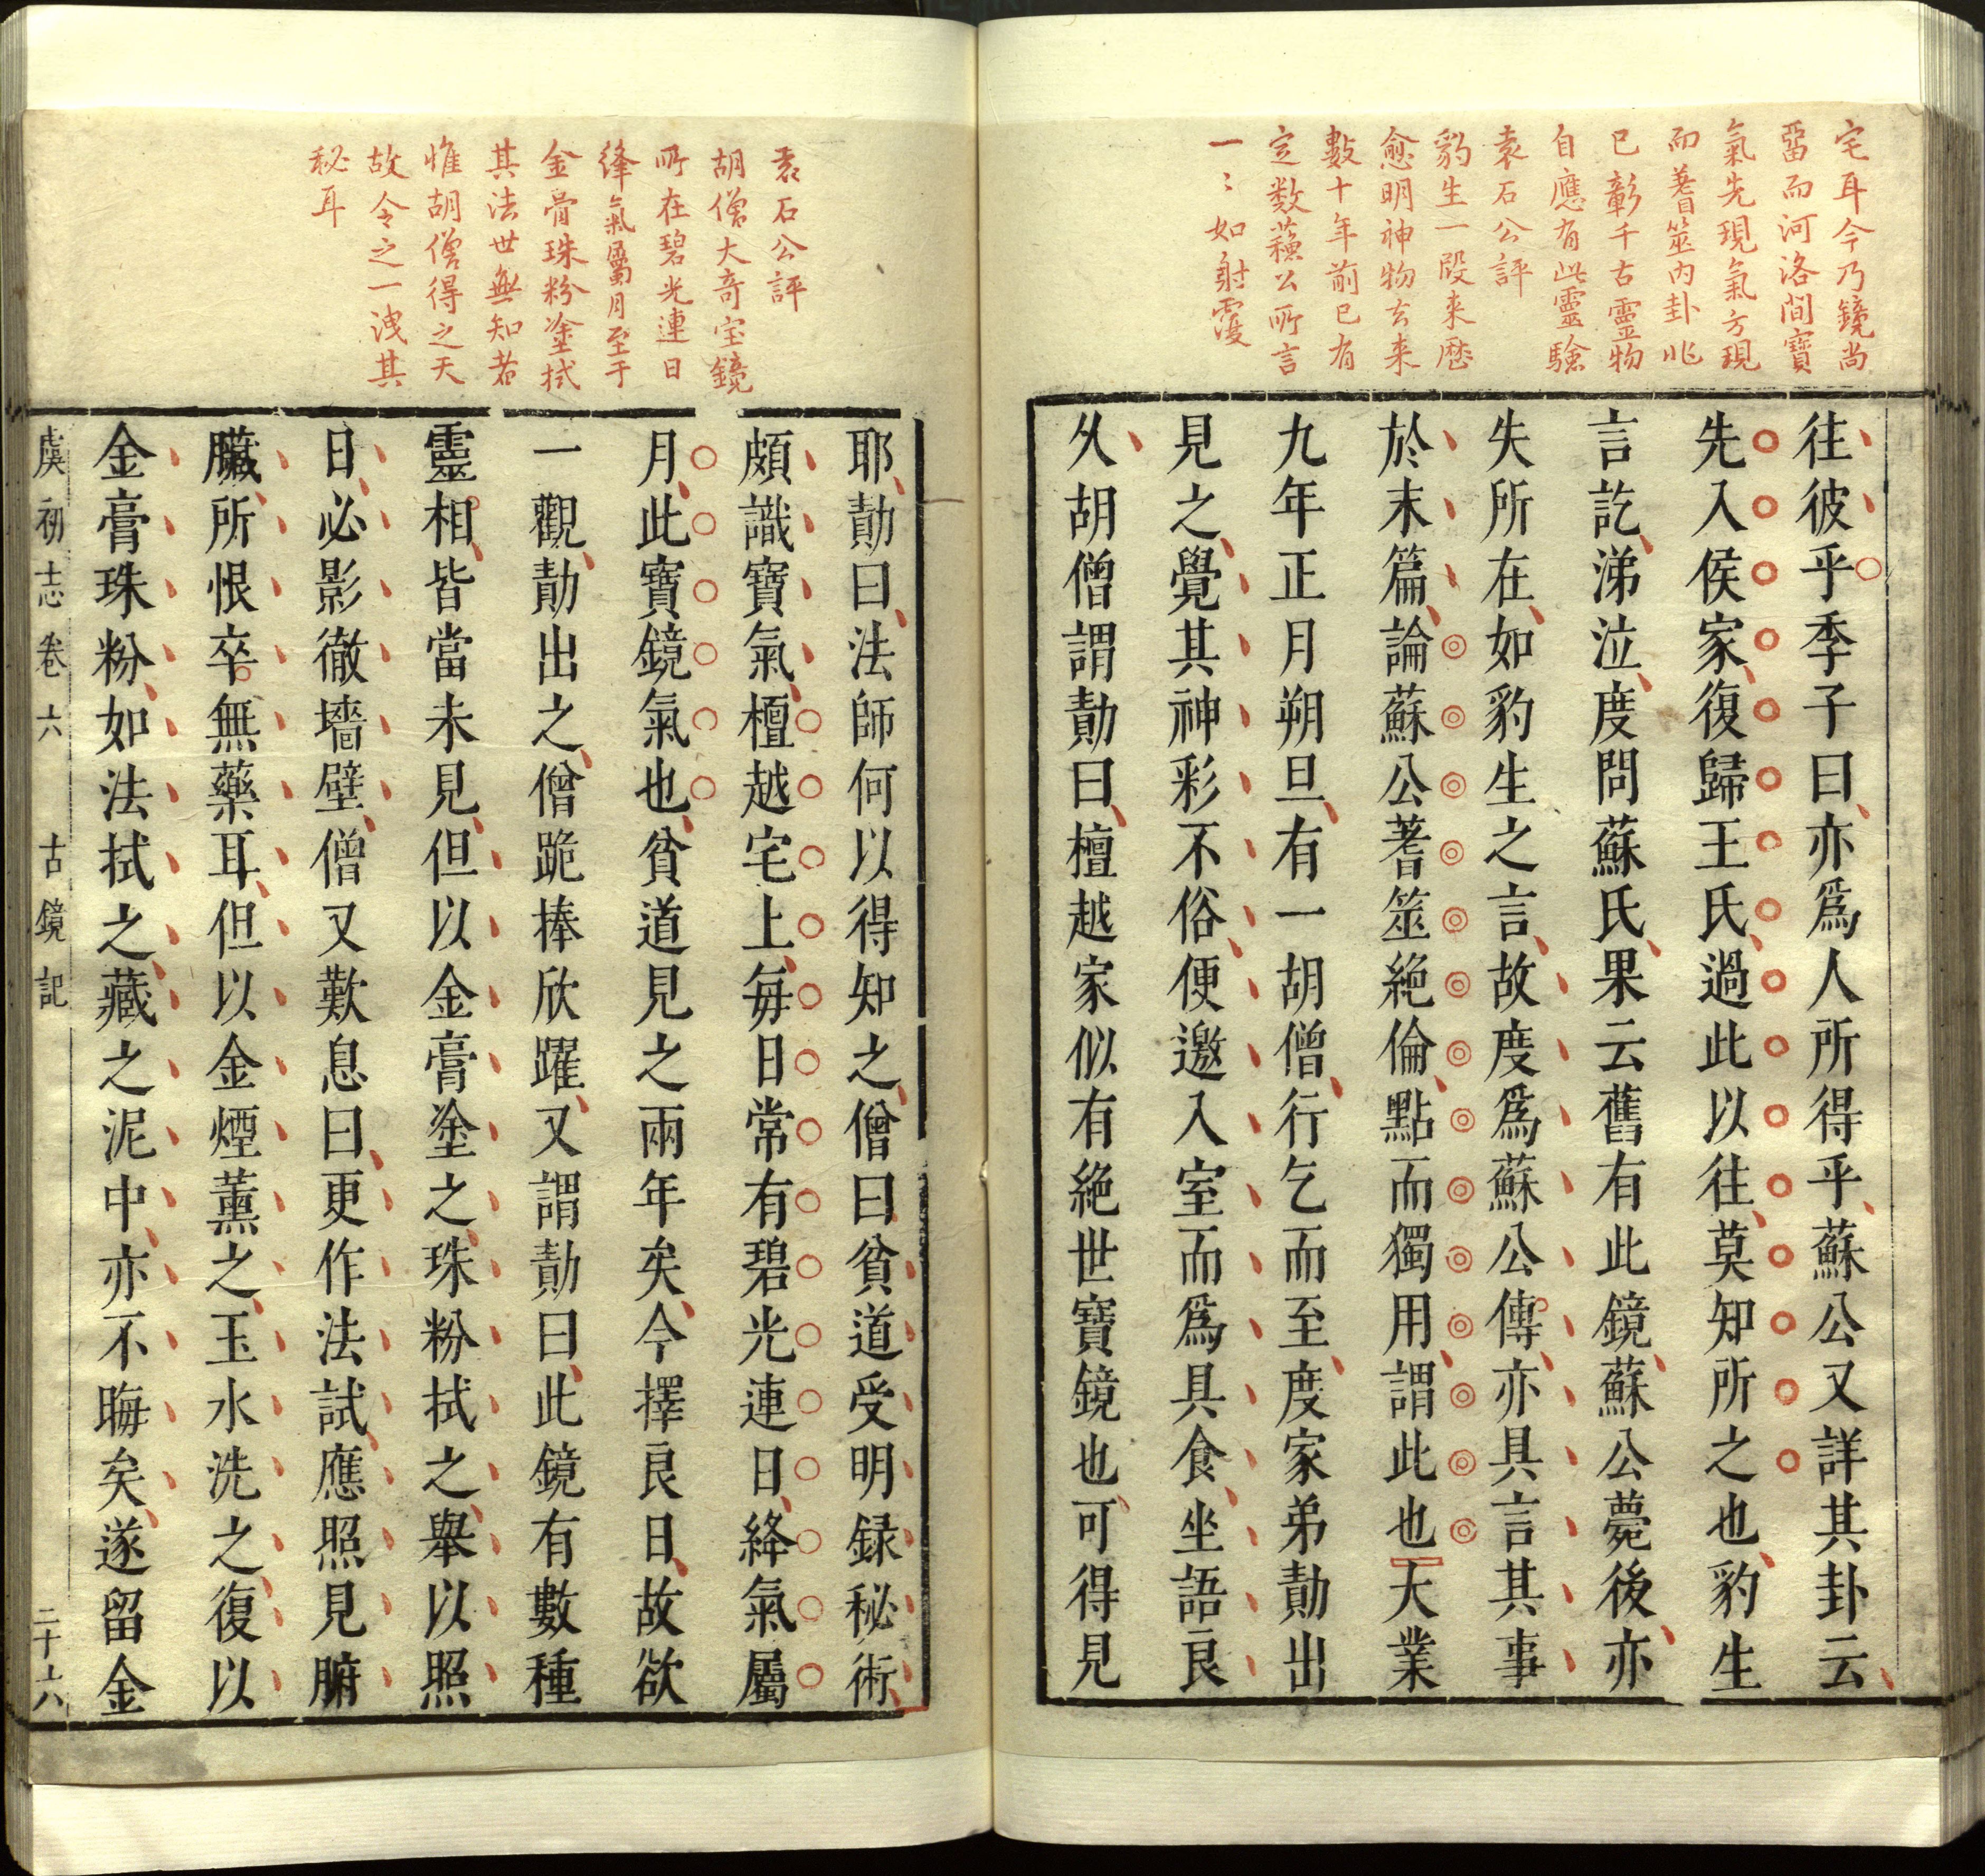 宅耳今乃鏡尚
畱而河洛間寶
氣先現氣方現
而蓍筮內卦兆
已彰千古靈物
自應有此靈驗
袁石公評
豹生一段來歷
愈明神物去來
數十年前已有
定数蘓公所言
一〻如射覆
往彼乎季子曰亦爲人所得乎蘇公又詳其卦云
先入侯家復歸王氏過此以往莫知所之也豹生
言訖涕泣度問蘇氏果云舊有此鏡蘇公薨後亦
失所在如豹生之言故度爲蘇公傳亦具言其事
於末篇論蘇公蓍筮絶倫點而獨用謂此也大業
九年正月朔旦有一胡僧行乞而至度家弟勣出
見之覺其神彩不俗便邀入室而爲具食坐語良
久胡僧謂勣曰檀越家似有絶世寶鏡也可得見
袁石公評
胡僧大奇宝鏡
所在碧光連日
絳氣屬月至于
金膏珠粉塗拭
其法世無知者
惟胡僧得之天
故令之一洩其
秘耳
耶勣曰法師何以得知之僧曰貧道受明録秘術
頗識寶氣檀越宅上每日常有碧光連日絳氣屬
月此寶鏡氣也貧道見之兩年矣今擇良日故欲
一觀勣出之僧跪捧欣躍又謂勣曰此鏡有數種
靈相皆當未見但以金膏塗之珠粉拭之舉以照
日必影徹墻壁僧又歎息曰更作法試應照見腑
臟所恨卒無藥耳但以金煙薫之玉水洗之復以
金膏珠粉如法拭之藏之泥中亦不晦矣遂留金
虞初志卷六 古鏡記 二十六